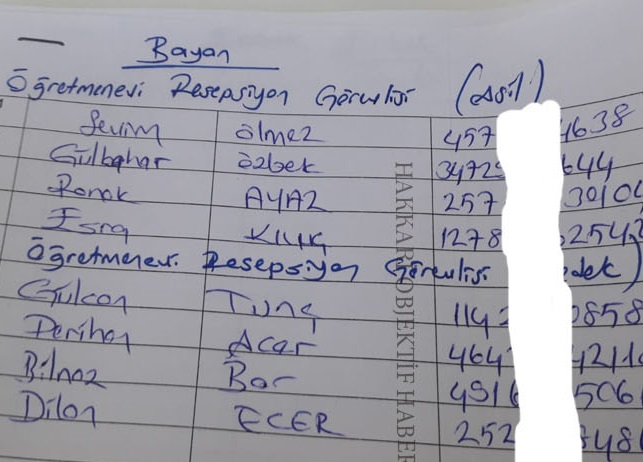 Bayan
Öğretmenevi Resepsiyon Görevlisi (Asil)
Sevim Ölmez 457 4638
Gülbahar Özbek 3472 644
Ronak AYAZ 257 3010
Esra KILIÇ 1278 2542
Öğretmenevi Resepsiyon Görevlisi edek)
Gülcan Tunç 114 0858
Perihan Acar 464 4211
Bilnaz Bor 4916 506
Dilan ECER 252 848
HAKKARİ OBJEKTİF HABER